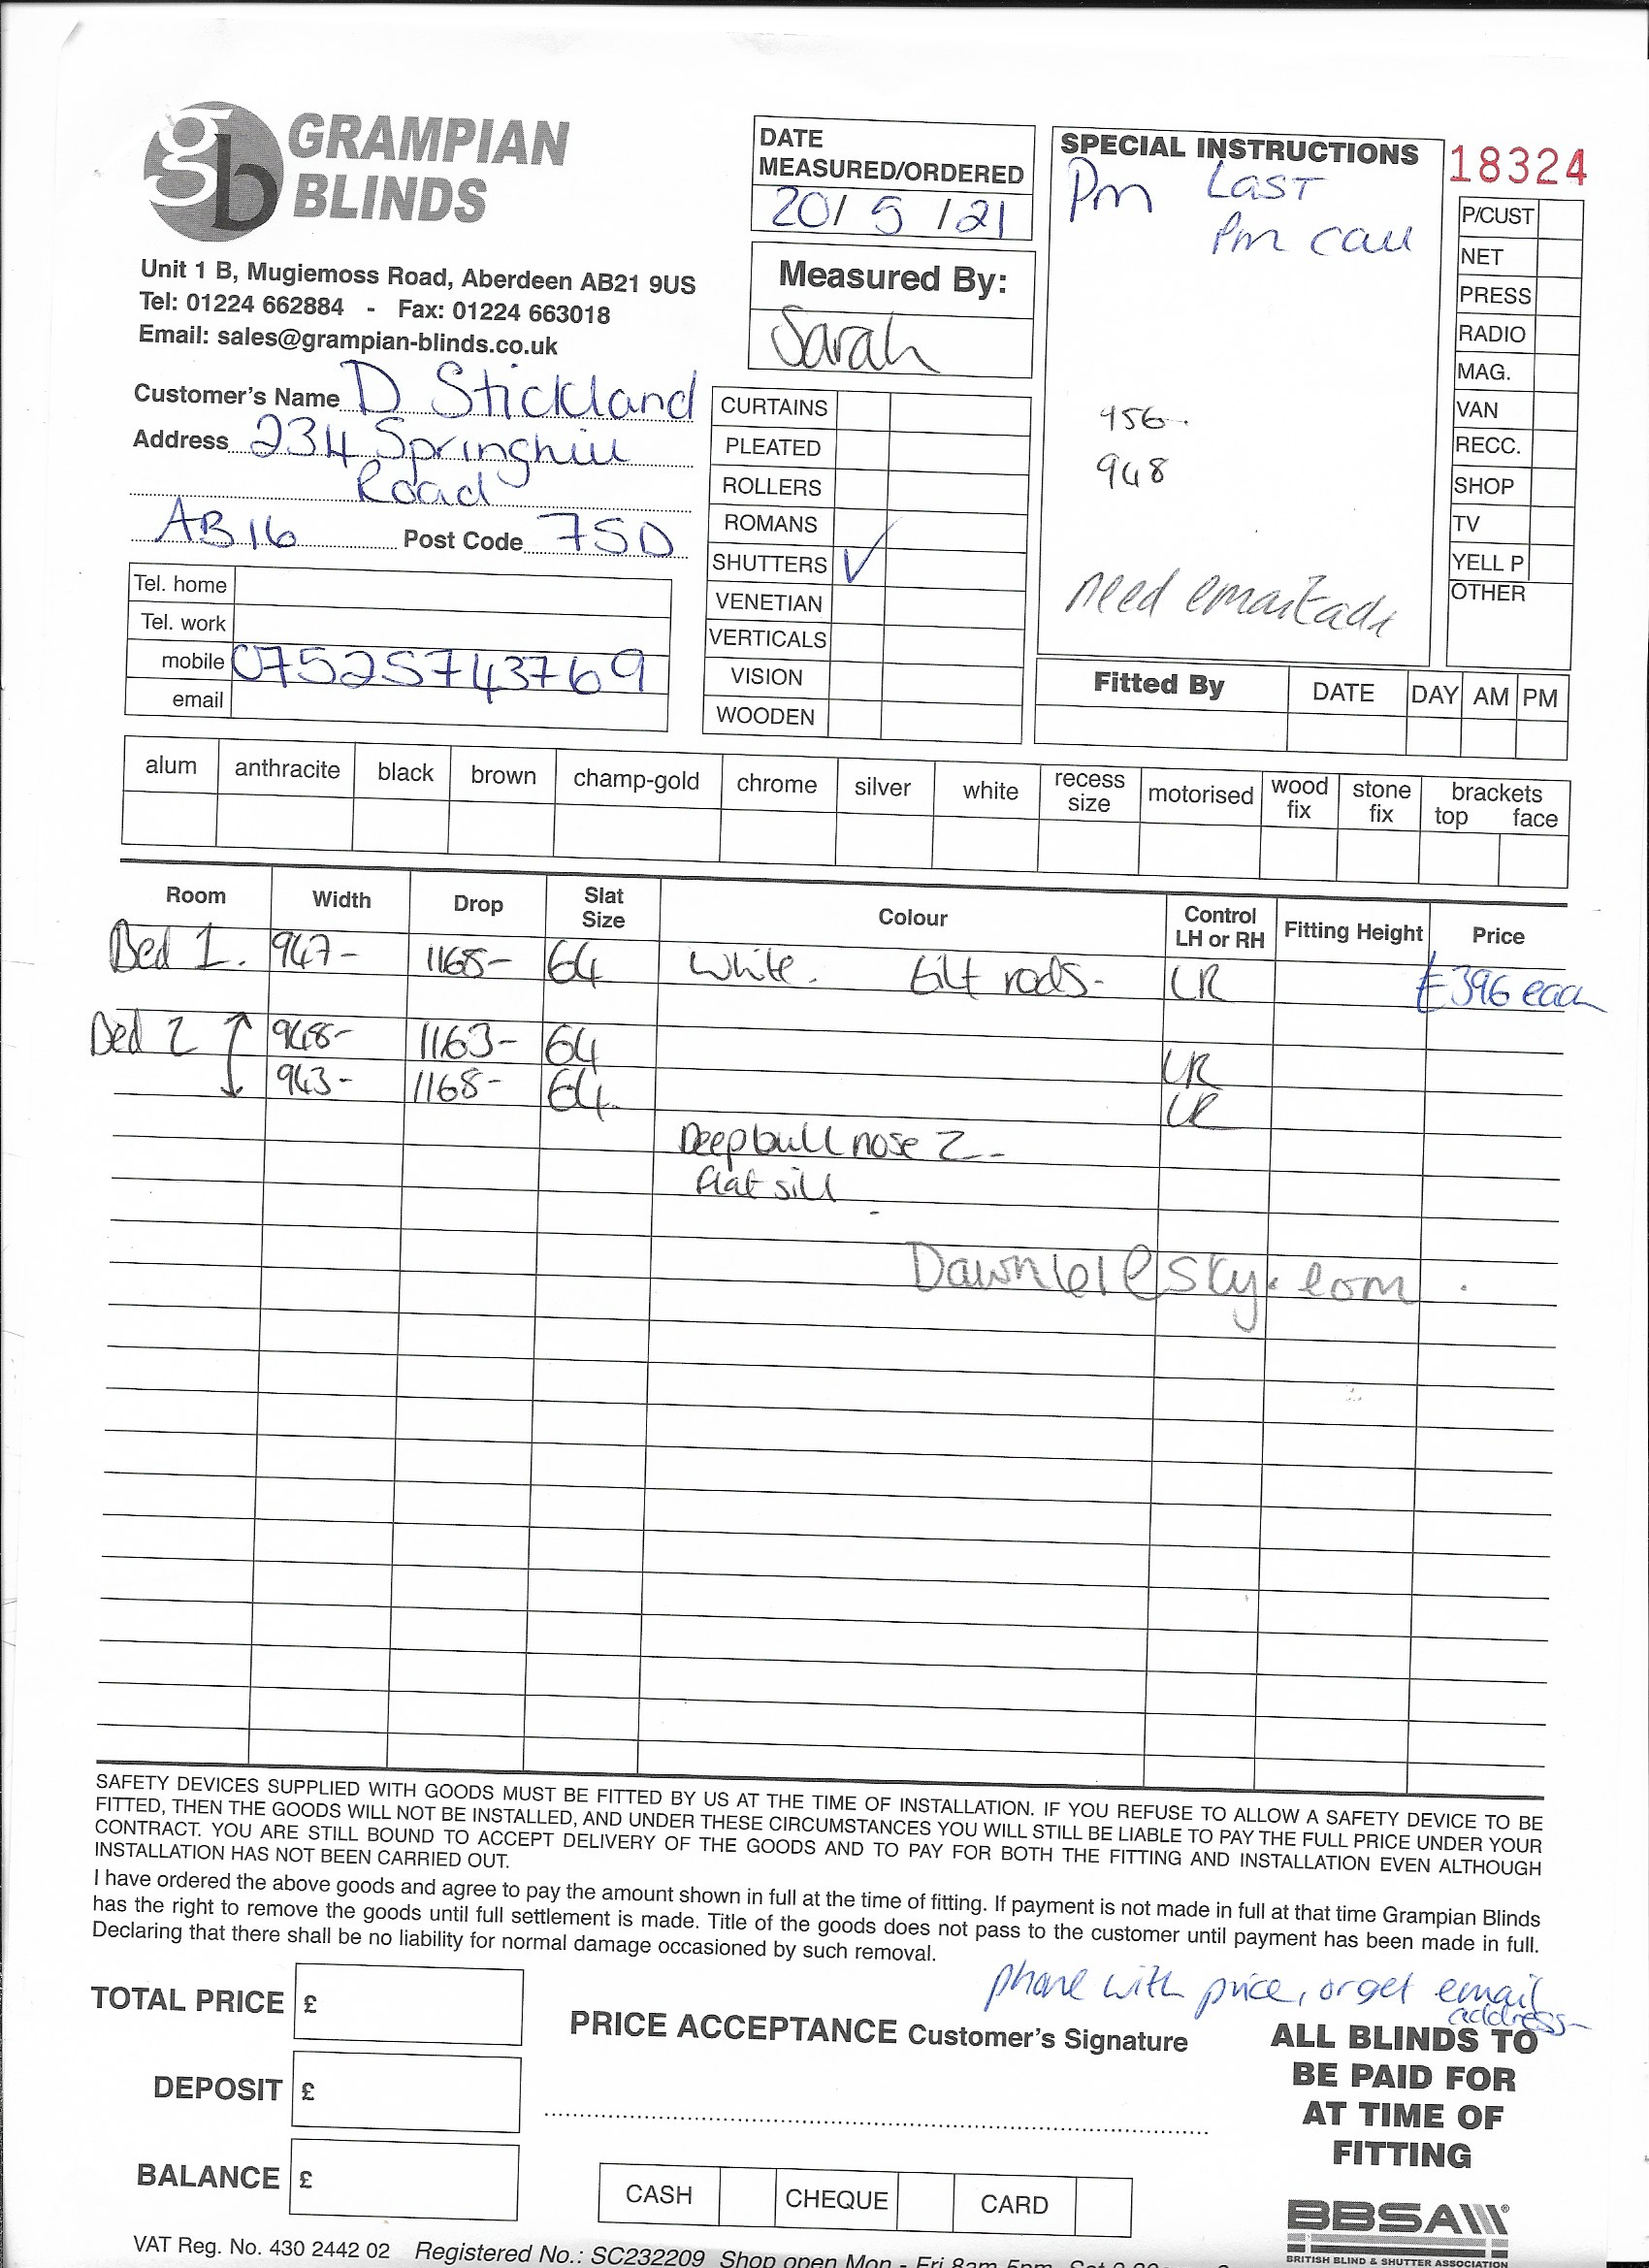 gb GRAMPIAN
BLINDS
Unit 1 B, Mugiemoss Road, Aberdeen AB21 9US
Tel: 01224 662884 - Fax: 01224 663018
Email: sales@grampian-blinds.co.uk
Customer's Name D Stickland
Address 234 Springhill
Road
AB16 Post Code 7SD
Tel. home
Tel. work
mobile 07525743769
email
DATE
MEASURED/ORDERED
20/ 5 /21
Measured By:
Sarah
CURTAINS
PLEATED
ROLLERS
ROMANS
SHUTTERS ✓
VENETIAN
VERTICALS
VISION
WOODEN
SPECIAL INSTRUCTIONS
Pm Last
Pm call
956-
948
need email add
18324
P/CUST
NET
PRESS
RADIO
MAG.
VAN
RECC.
SHOP
TV
YELL P
OTHER
Fitted By DATE DAY AM PM
alum anthracite black brown champ-gold chrome silver white recess size motorised wood fix stone fix brackets top face
Room Width Drop Slat Size Colour Control LH or RH Fitting Height Price
Bed 1. 947- 1165- 64 White. tilt rods- LR £396 each
Bed 2 948- 1163- 64 LR
943- 1168- 64 LR
Deep bull nose Z-
flat sill
Dawn161@sky.com
SAFETY DEVICES SUPPLIED WITH GOODS MUST BE FITTED BY US AT THE TIME OF INSTALLATION. IF YOU REFUSE TO ALLOW A SAFETY DEVICE TO BE
FITTED, THEN THE GOODS WILL NOT BE INSTALLED, AND UNDER THESE CIRCUMSTANCES YOU WILL STILL BE LIABLE TO PAY THE FULL PRICE UNDER YOUR
CONTRACT. YOU ARE STILL BOUND TO ACCEPT DELIVERY OF THE GOODS AND TO PAY FOR BOTH THE FITTING AND INSTALLATION EVEN ALTHOUGH
INSTALLATION HAS NOT BEEN CARRIED OUT.
I have ordered the above goods and agree to pay the amount shown in full at the time of fitting. If payment is not made in full at that time Grampian Blinds
has the right to remove the goods until full settlement is made. Title of the goods does not pass to the customer until payment has been made in full.
Declaring that there shall be no liability for normal damage occasioned by such removal.
phone with price, or get email
address-
TOTAL PRICE £
DEPOSIT £
BALANCE £
PRICE ACCEPTANCE Customer's Signature
CASH CHEQUE CARD
ALL BLINDS TO
BE PAID FOR
AT TIME OF
FITTING
BBSA
BRITISH BLIND & SHUTTER ASSOCIATION
VAT Reg. No. 430 2442 02 Registered No.: SC232209 Shop open Mon - Fri 8am 5pm